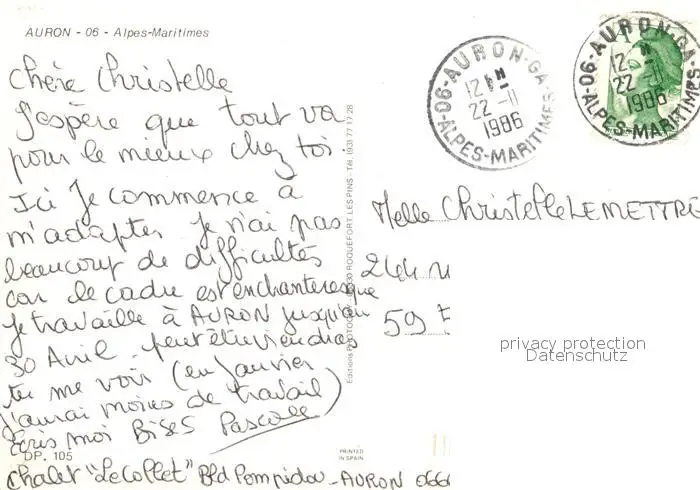 AURON - 06 - Alpes-Maritimes
Chère Christelle
J'espère que tout va
pour le mieux chez toi
Ici Je commence à
m'adapter Je n'ai pas
beaucoup de difficultés
car le cadre est enchanteresque
Je travaille à AURON jusqu'au
30 Avril. peut être viendras
tu me voir (en Janvier
J'aurai moins de travail)
Ecris moi BISES Pascale
DP. 105
Chalet "Le Collet" Bld Pompidou - AURON 066
PRINTED
IN SPAIN
ROQUEFORT LES PINS - Tél. (93) 77 17 28
06-AURON-GA-
12 H
22 -11
1986
-ALPES-MARITIMES-
06-AURON-GA-S
12 H
22 -11
1986
-ALPES-MARITIMES
Melle Christelle LEMETTRE
244
59
privacy protection
Datenschutz